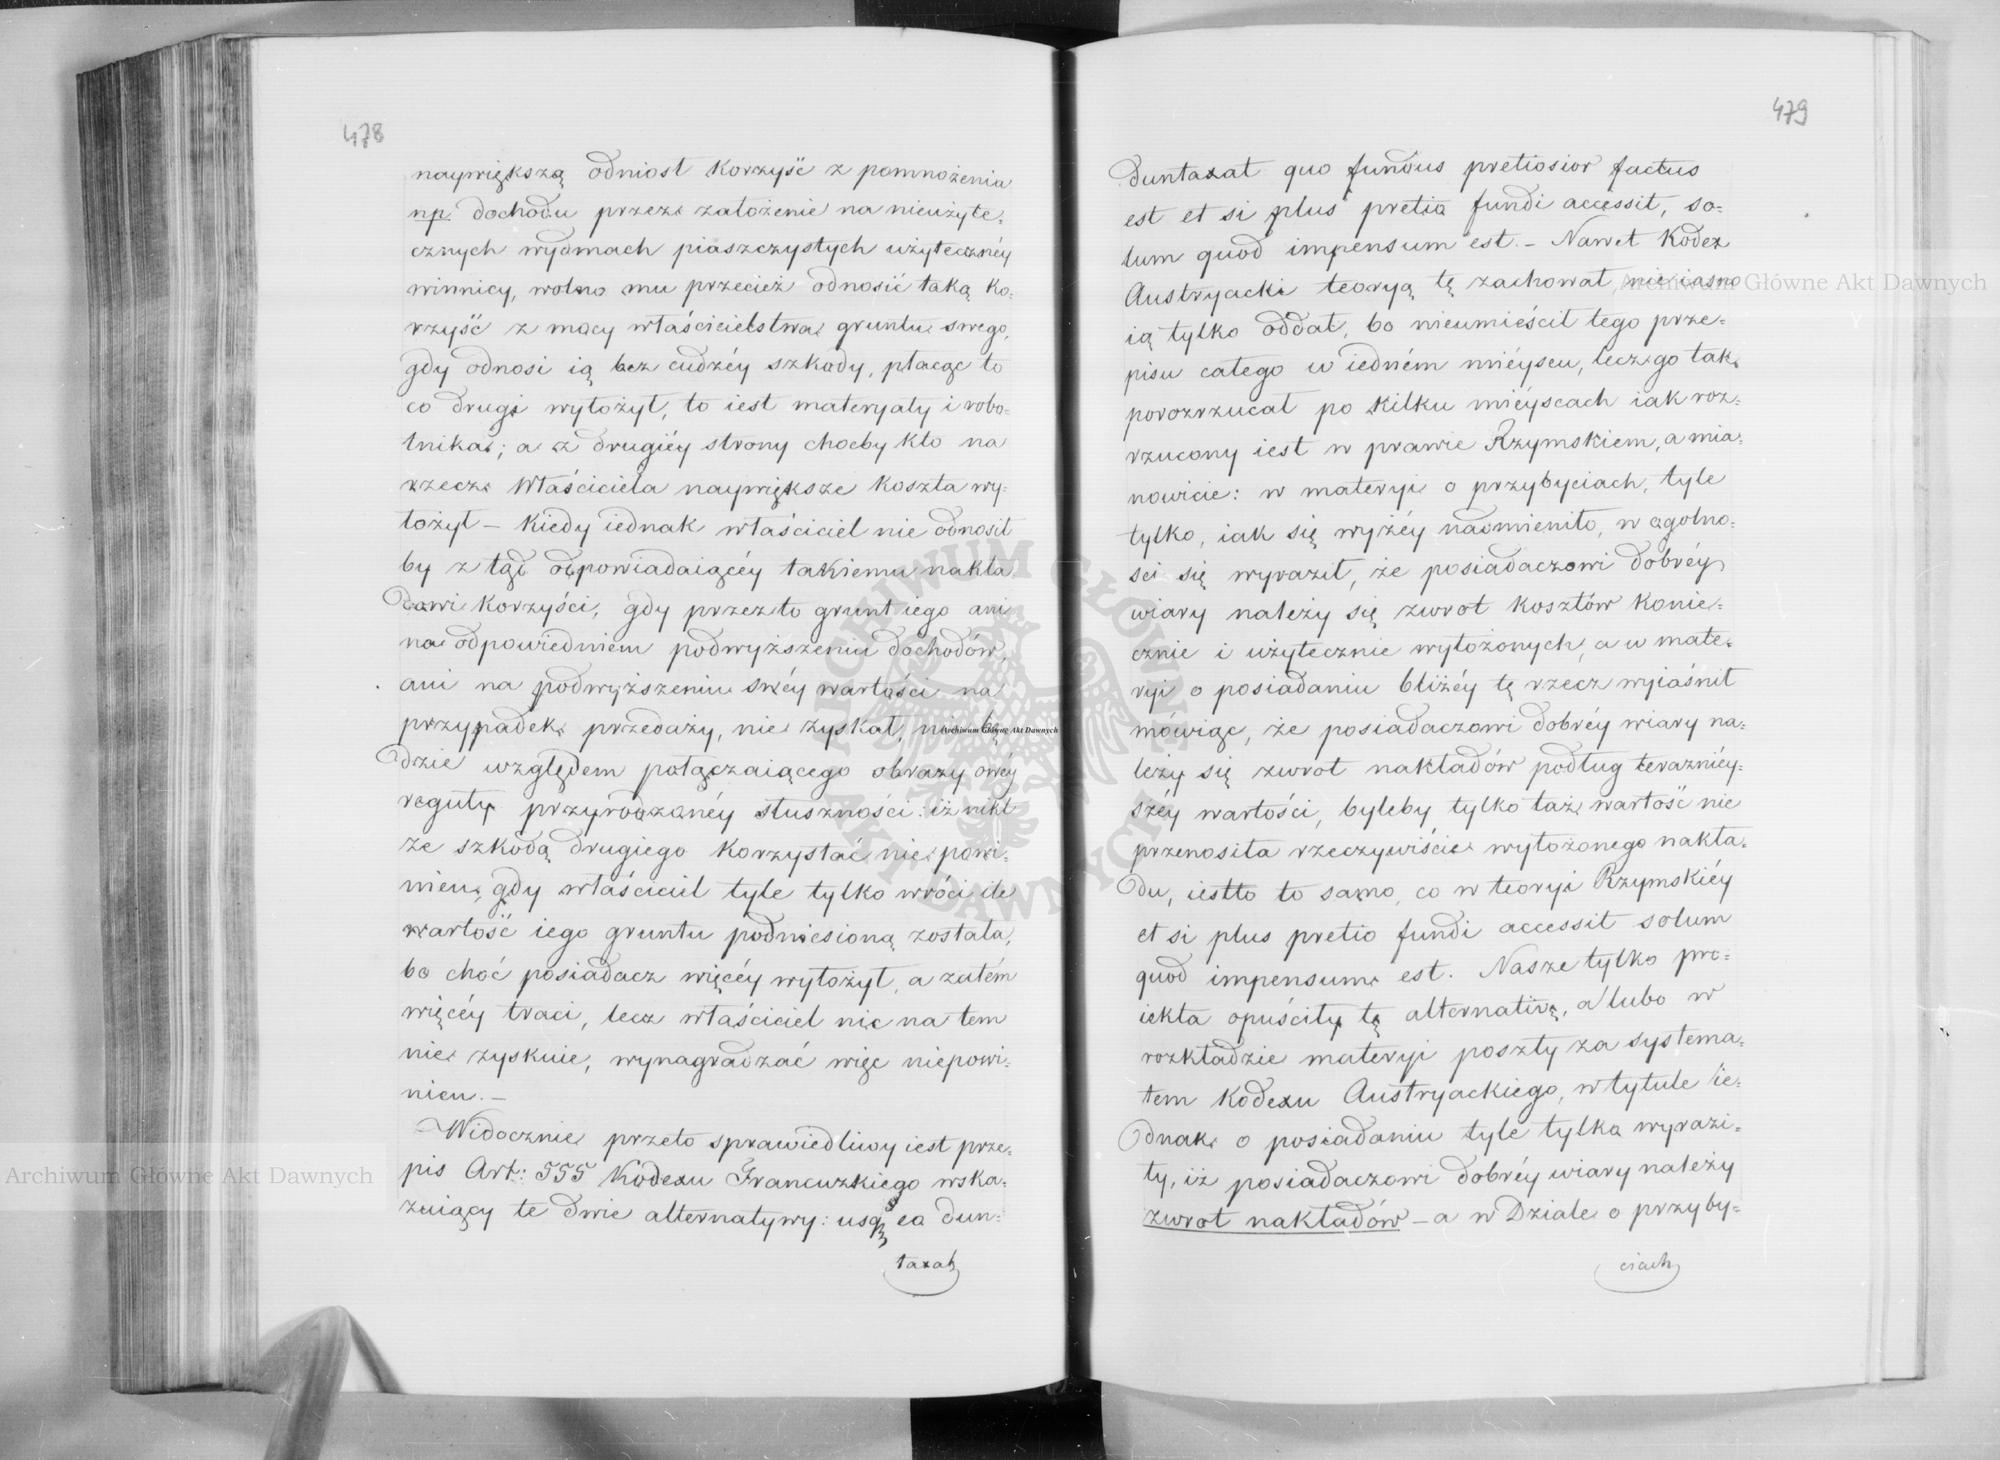 478
naywiększą odniosł korzyść z pomnożenia
np. dochodu przez założenie na nieużyte-
cznych wydmach piaszczystych użytecznéy
winnicy, wolno mu przecież odnosić taką ko-
rzyść z mocy właścicielstwa gruntu swego,
gdy odnosi ią bez cudzéy szkody, płacąc to
co drugi wyłożył, to iest materyały i robo-
tnika; a z drugiéy strony choćby kto na
rzecz Właściciela naywiększe koszta wy-
łożył – kiedy iednak właściciel nie odnosił
by z tąd odpowiadaiącéy takiemu nakła-
dowi korzyści, gdy przez to grunt iego ani
na odpowiedniem podwyższeniu dochodów,
ani na podwyższeniu swéy wartości na
przypadek przedaży, nie zyskał, nie bę-
dzie względem połączaiącego obrazy owéy
reguły przyrodzonéy słuszności: iż nikt
ze szkodą drugiego korzystać nie powi-
nien, gdy właściciel tyle tylko wróci ile
wartość iego gruntu podniesioną została,
bo choć posiadacz więcéy wyłożył, a zatém
więcéy traci, lecz właściciel nic na tem
nie zyskuie, wynagradzać więc niepowi-
nien. –
Widocznie przeto sprawiedliwy iest prze-
pis Art: 555 Kodexu Francuzkiego wska-
zuiący te dwie alternatywy: usq ea dun-
taxat
479
duntaxat quo fundus pretiosior factus
est et si plus pretio fundi accessit, so-
lum quod impensum est. – Nawet Kodex
Austryacki teoryą tę zachował nie iasno
ią tylko oddał, bo nieumieścił tego prze-
pisu całego w iedném mieyscu, lecz go tak
porozrzucał po kilku mieyscach iak roz-
rzucony iest w prawie Rzymskiem, a mia-
nowicie: w materyi o przybyciach, tyle
tylko, iak się wyżéy nadmieniło, w ogólno-
ści się wyraził, że posiadaczowi dobréy
wiary należy się zwrot kosztów konie-
cznie i użytecznie wyłożonych, a w mate-
ryi o posiadaniu bliżéy tę rzecz wyiaśnił
mówiąc, że posiadaczowi dobréy wiary na-
leży się zwrot nakładów podług teraźniéy-
széy wartości, byleby tylko taż wartość nie
przenosiła rzeczywiście wyłożonego nakła-
du, iestto to samo, co w teoryi Rzymskiéy
et si plus pretio fundi accessit solum
quod impensum est. Nasze tylko pro-
iekta opuściły tę alternativę, a lubo w
rozkładzie materyi poszły za systema-
tem Kodexu Austryackiego, w tytule ie-
dnak o posiadaniu tyle tylko wyrazi-
ły, iż posiadaczowi dobréy wiary należy
zwrot nakładów – a w Dziale o przyby-
ciach
Archiwum Główne Akt Dawnych
Archiwum Główne Akt Dawnych
Archiwum Główne Akt Dawnych
ARCHIWUM GŁÓWNE AKT DAWNYCH